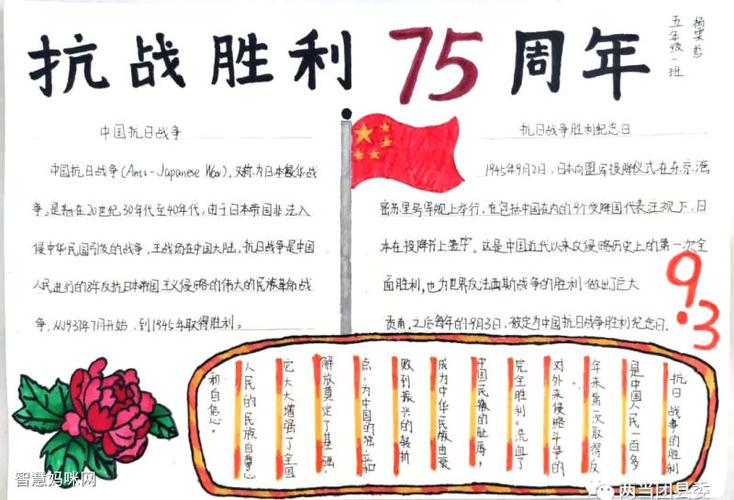 抗战胜利75周年
五年级一班
中国抗日战争
中国抗日战争(Anti-Japanese War),又称为日本侵华战
争。是指在20世纪,30年代至40年代,由于日本帝国非法入
侵中华民国引发的战争,主战场在中国大陆。抗日战争是中国
人民进行的8年反抗日本帝国主义侵略的伟大的民族革命战
争,从1937年7月开始,到1945年取得胜利。
抗日战争胜利纪念日
1945年9月2日,日本向盟军投降仪式在东京湾
密苏里号军舰上举行,在包括中国在内的9个受降国代表注视下,日
本在投降书上签字。这是中国近代以来反侵略历史上的第一次全
面胜利,也为世界反法西斯战争的胜利做出了巨大
贡献,之后每年的9月3日,被定为中国抗日战争胜利纪念日.
9.3
抗日战争的胜利
是中国人民一百多
年来第一次取得反
对外来侵略斗争的
完全胜利。洗血了
中国民族的耻辱,
成为中华民族由衰
败到振兴的转折
点,为中国的独立和
解放奠定了基础。
它大大增强了全国
人民的民族自尊心
和自信心。
智慧妈咪网
两当团县委